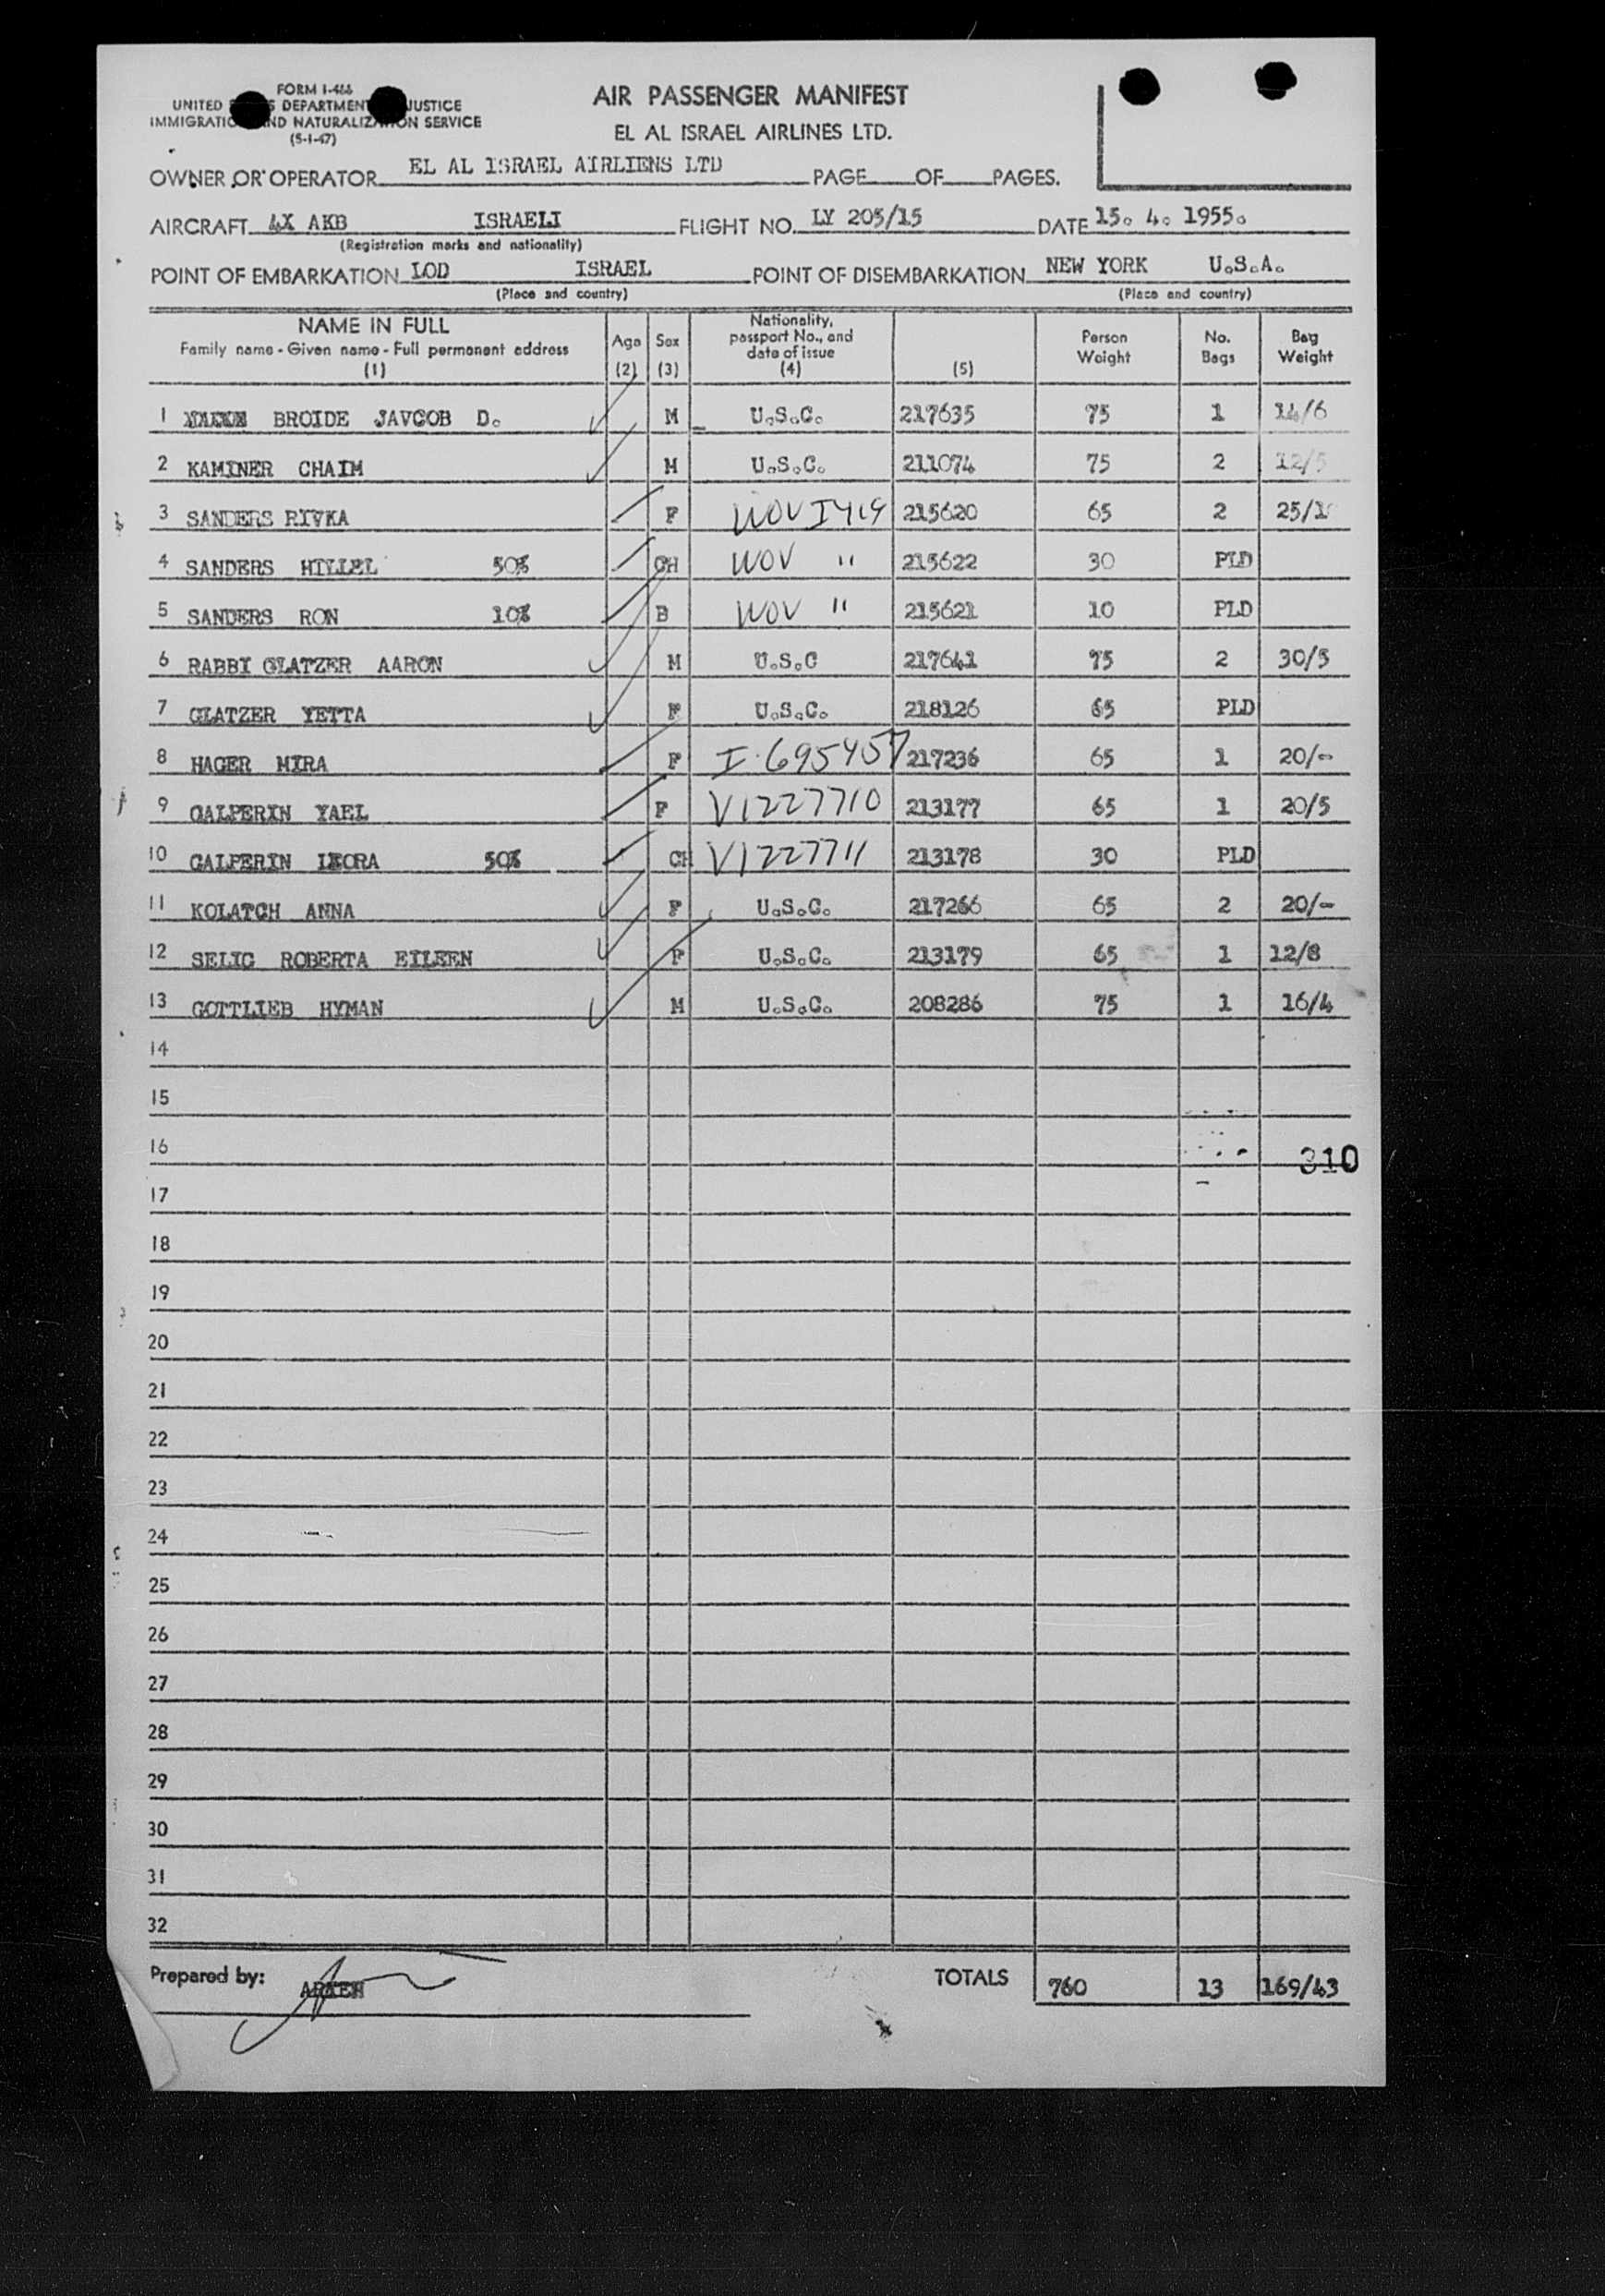 FORM I-466
UNITED DEPARTMENT JUSTICE
IMMIGRATION AND NATURALIZATION SERVICE
(5-1-47)
AIR PASSENGER MANIFEST
EL AL ISRAEL AIRLINES LTD.
OWNER OR OPERATOR EL AL ISRAEL AIRLIENS LTD PAGE OF PAGES.
AIRCRAFT 4X AKB ISRAELI FLIGHT NO. LY 205/15 DATE 15. 4. 1955.
(Registration marks and nationality)
POINT OF EMBARKATION LOD ISRAEL POINT OF DISEMBARKATION NEW YORK U.S.A.
(Place and country) (Place and country)
NAME IN FULL Family name - Given name - Full permanent address (1) Age (2) Sex (3) Nationality, passport No., and date of issue (4) (5) Person Weight No. Bags Bag Weight
1 BROIDE JAVCOB D. M U.S.C. 217635 75 1 14/6
2 KAMINER CHAIM M U.S.C. 211074 75 2 12/5
3 SANDERS RIVKA F WOV I419 215620 65 2 25/
4 SANDERS HILLEL 50% CH WOV " 215622 30 PLD
5 SANDERS RON 10% B WOV " 215621 10 PLD
6 RABBI GLATZER AARON M U.S.C 217641 75 2 30/5
7 GLATZER YETTA F U.S.C. 218126 65 PLD
8 HAGER MIRA F I-695457 217236 65 1 20/-
9 GALPERIN YAEL F V1227710 213177 65 1 20/5
10 GALPERIN LEORA 50% CH V1227711 213178 30 PLD
11 KOLATCH ANNA F U.S.C. 217266 65 2 20/-
12 SELIG ROBERTA EILEEN F U.S.C. 213179 65 1 12/8
13 GOTTLIEB HYMAN M U.S.C. 208286 75 1 16/4
14
15
16
310
17
18
19
20
21
22
23
24
25
26
27
28
29
30
31
32
Prepared by: ARYEH TOTALS 760 13 169/43